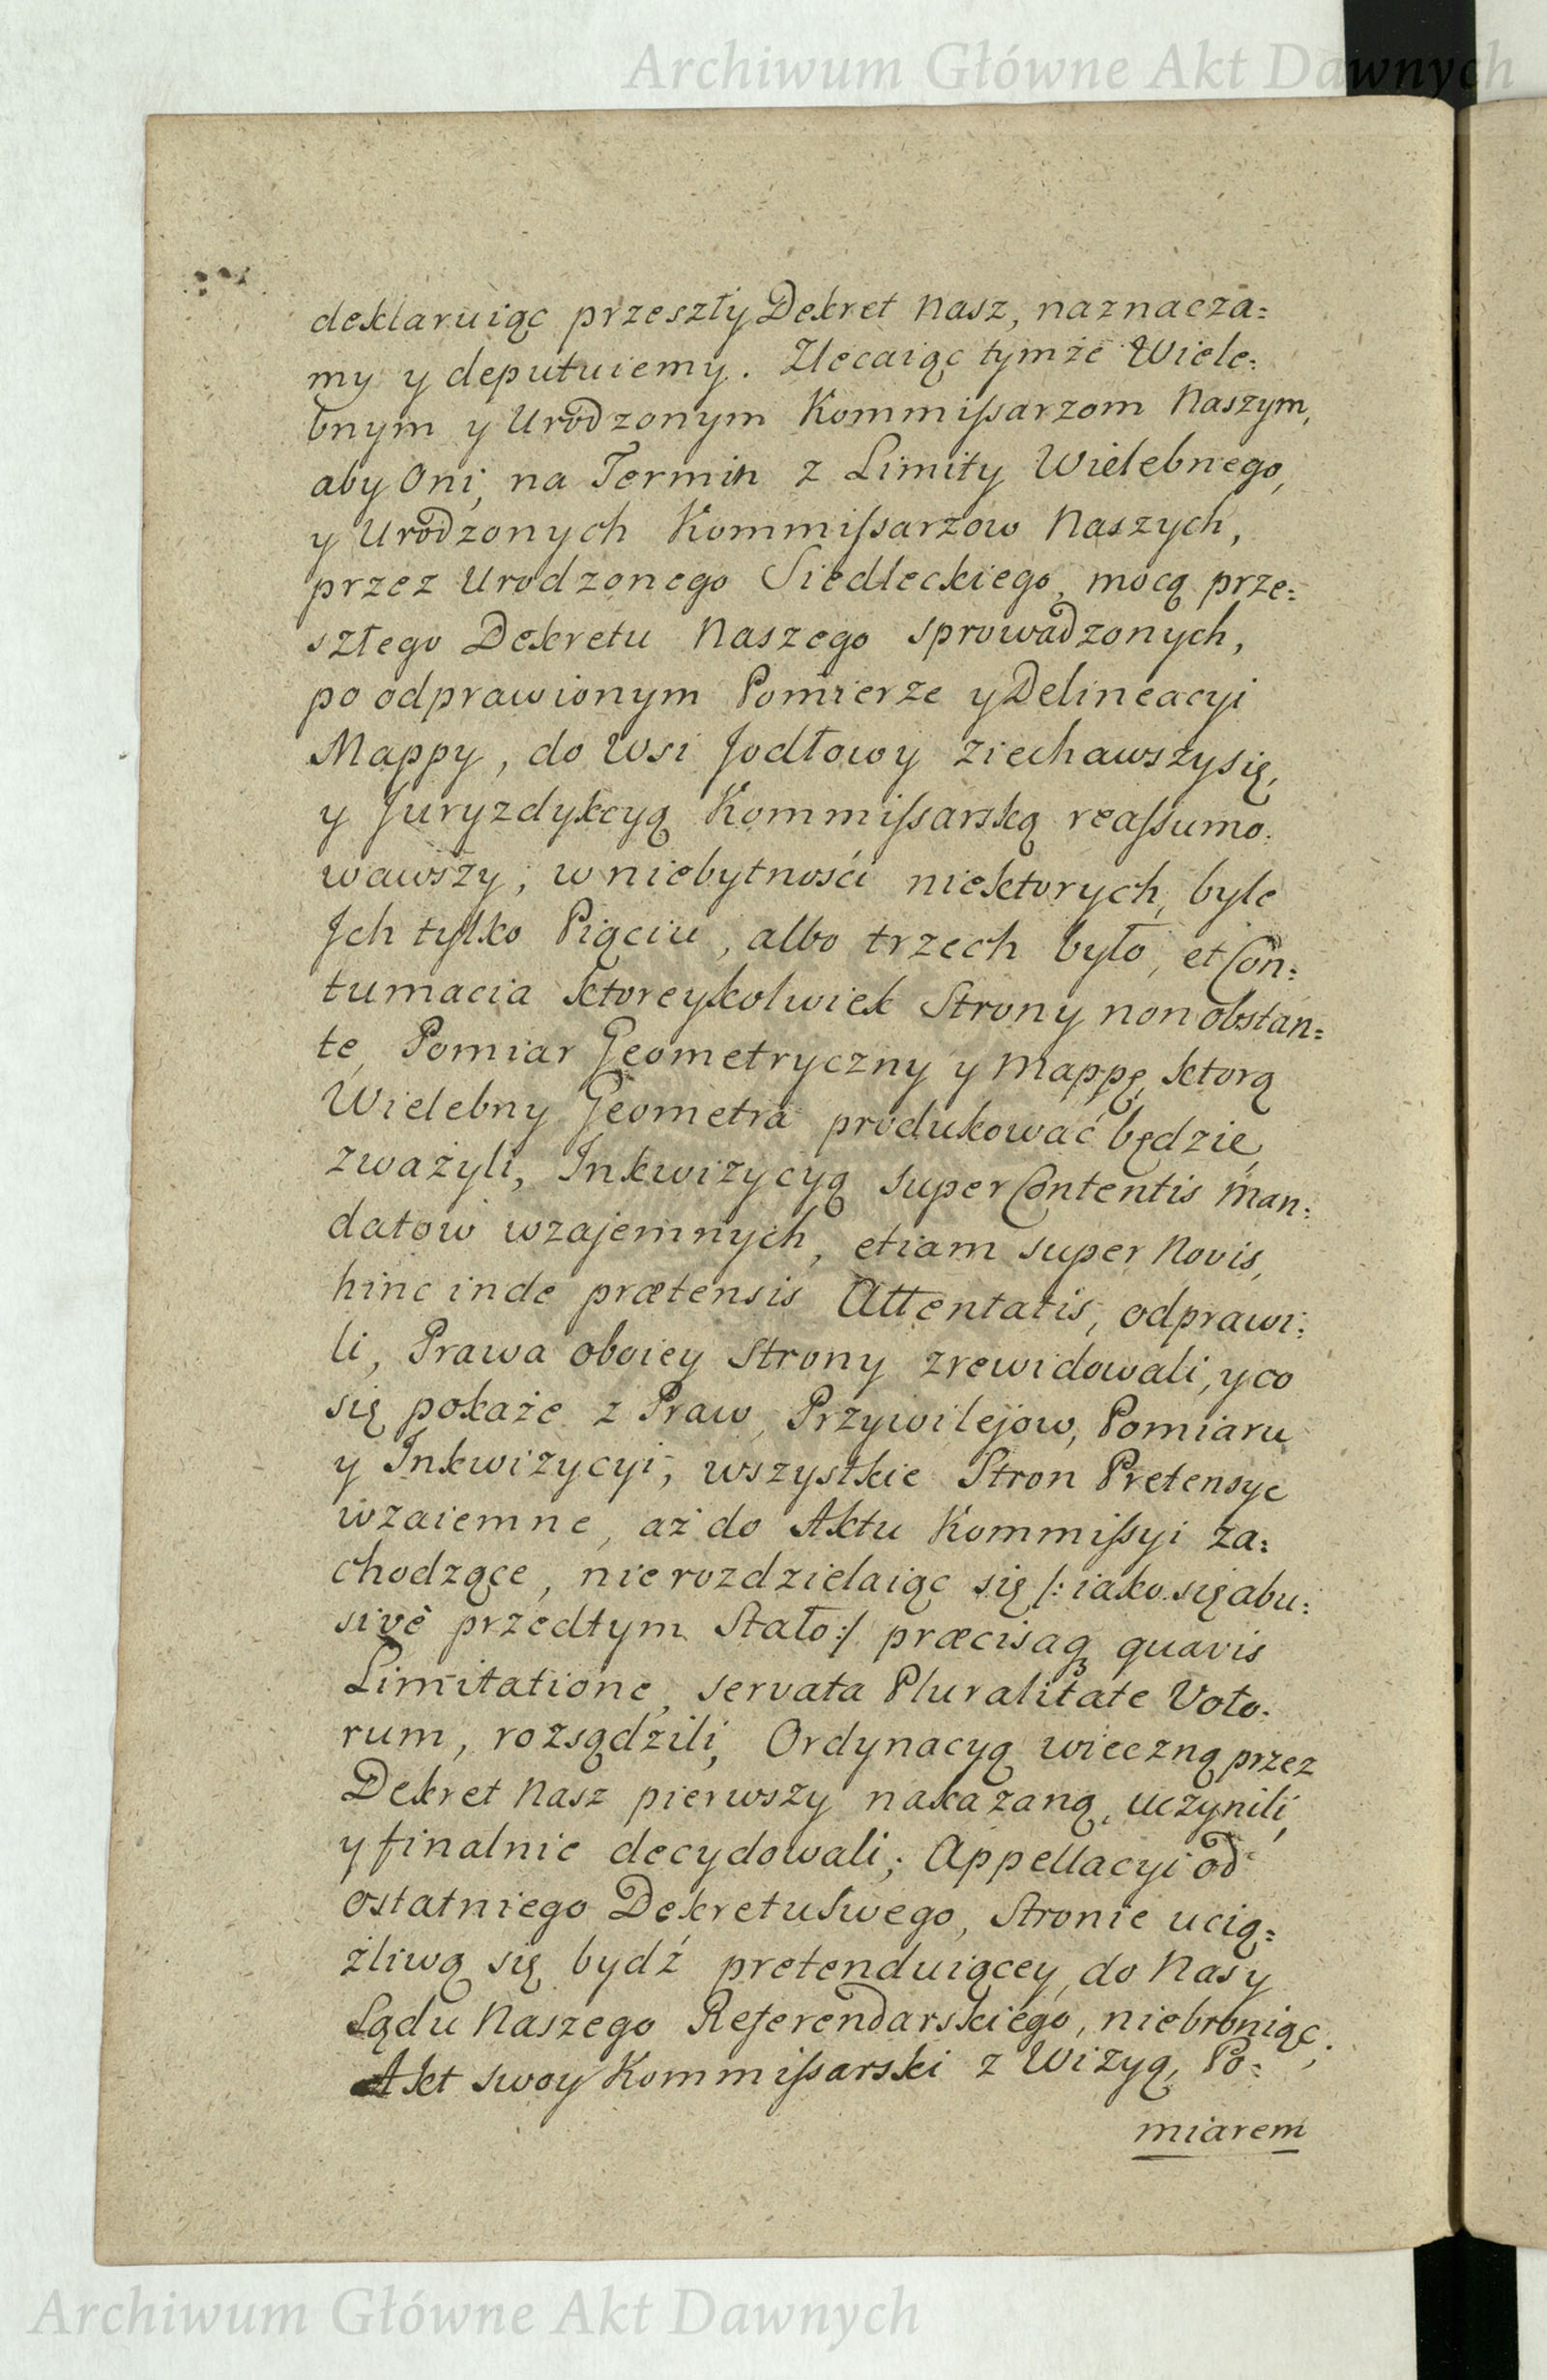 Archiwum Główne Akt Dawnych
deklaruiąc przeszły Dekret Nasz, naznacza=
my y deputuiemy. Zlecaiąc tymże Wiele=
bnym y Urodzonym Kommiſsarzom Naszym,
aby Oni, na Termin z Limity Wielebnego,
y Urodzonych Kommiſsarzow Naszych,
przez Urodzonego Siedleckiego, mocą prze=
szłego Dekretu Naszego sprowadzonych,
po odprawionym Pomierze y Delineacyi
Mappy, do Wsi Jodłowy ziechawszy się,
y Juryzdykcyą Kommiſsarską reaſsumo=
wawszy, w niebytności niektorych, byle
Jch tylko Piąciu, albo trzech było, et Con=
tumacia ktoreykolwiek Strony non obstan=
te, Pomiar Geometryczny y Mappę, ktorą
Wielebny Geometra produkować będzie,
zważyli, Inkwizycyą super Contentis Man=
datow wzajemnych, etiam super Novis,
hinc inde prætensis Attentatis, odprawi=
li, Prawa oboiey Strony zrewidowali, y co
się pokaże z Praw, Przywilejow, Pomiaru
y Inkwizycyi, wszystkie Stron Pretensye
wzaiemne, aż do Aktu Kommiſsyi za=
chodzące, nie rozdzielaiąc się /: iako się abu=
sivè przedtym Stało :/ præcisaq quavis
Limitatione, servata Pluralitate Voto=
rum, rozsądzili, Ordynacyą wieczną przez
Dekret Nasz pierwszy nakazaną, uczynili,
y finalnie decydowali; Appellacyi od
ostatniego Dekretu Swego, Stronie ucią=
żliwą się bydź pretenduiącey, do Nas y
Sądu Naszego Referendarskiego, niebroniąc;
Akt swoy Kommiſsarski z Wizyą, Po=
miarem
Archiwum Główne Akt Dawnych